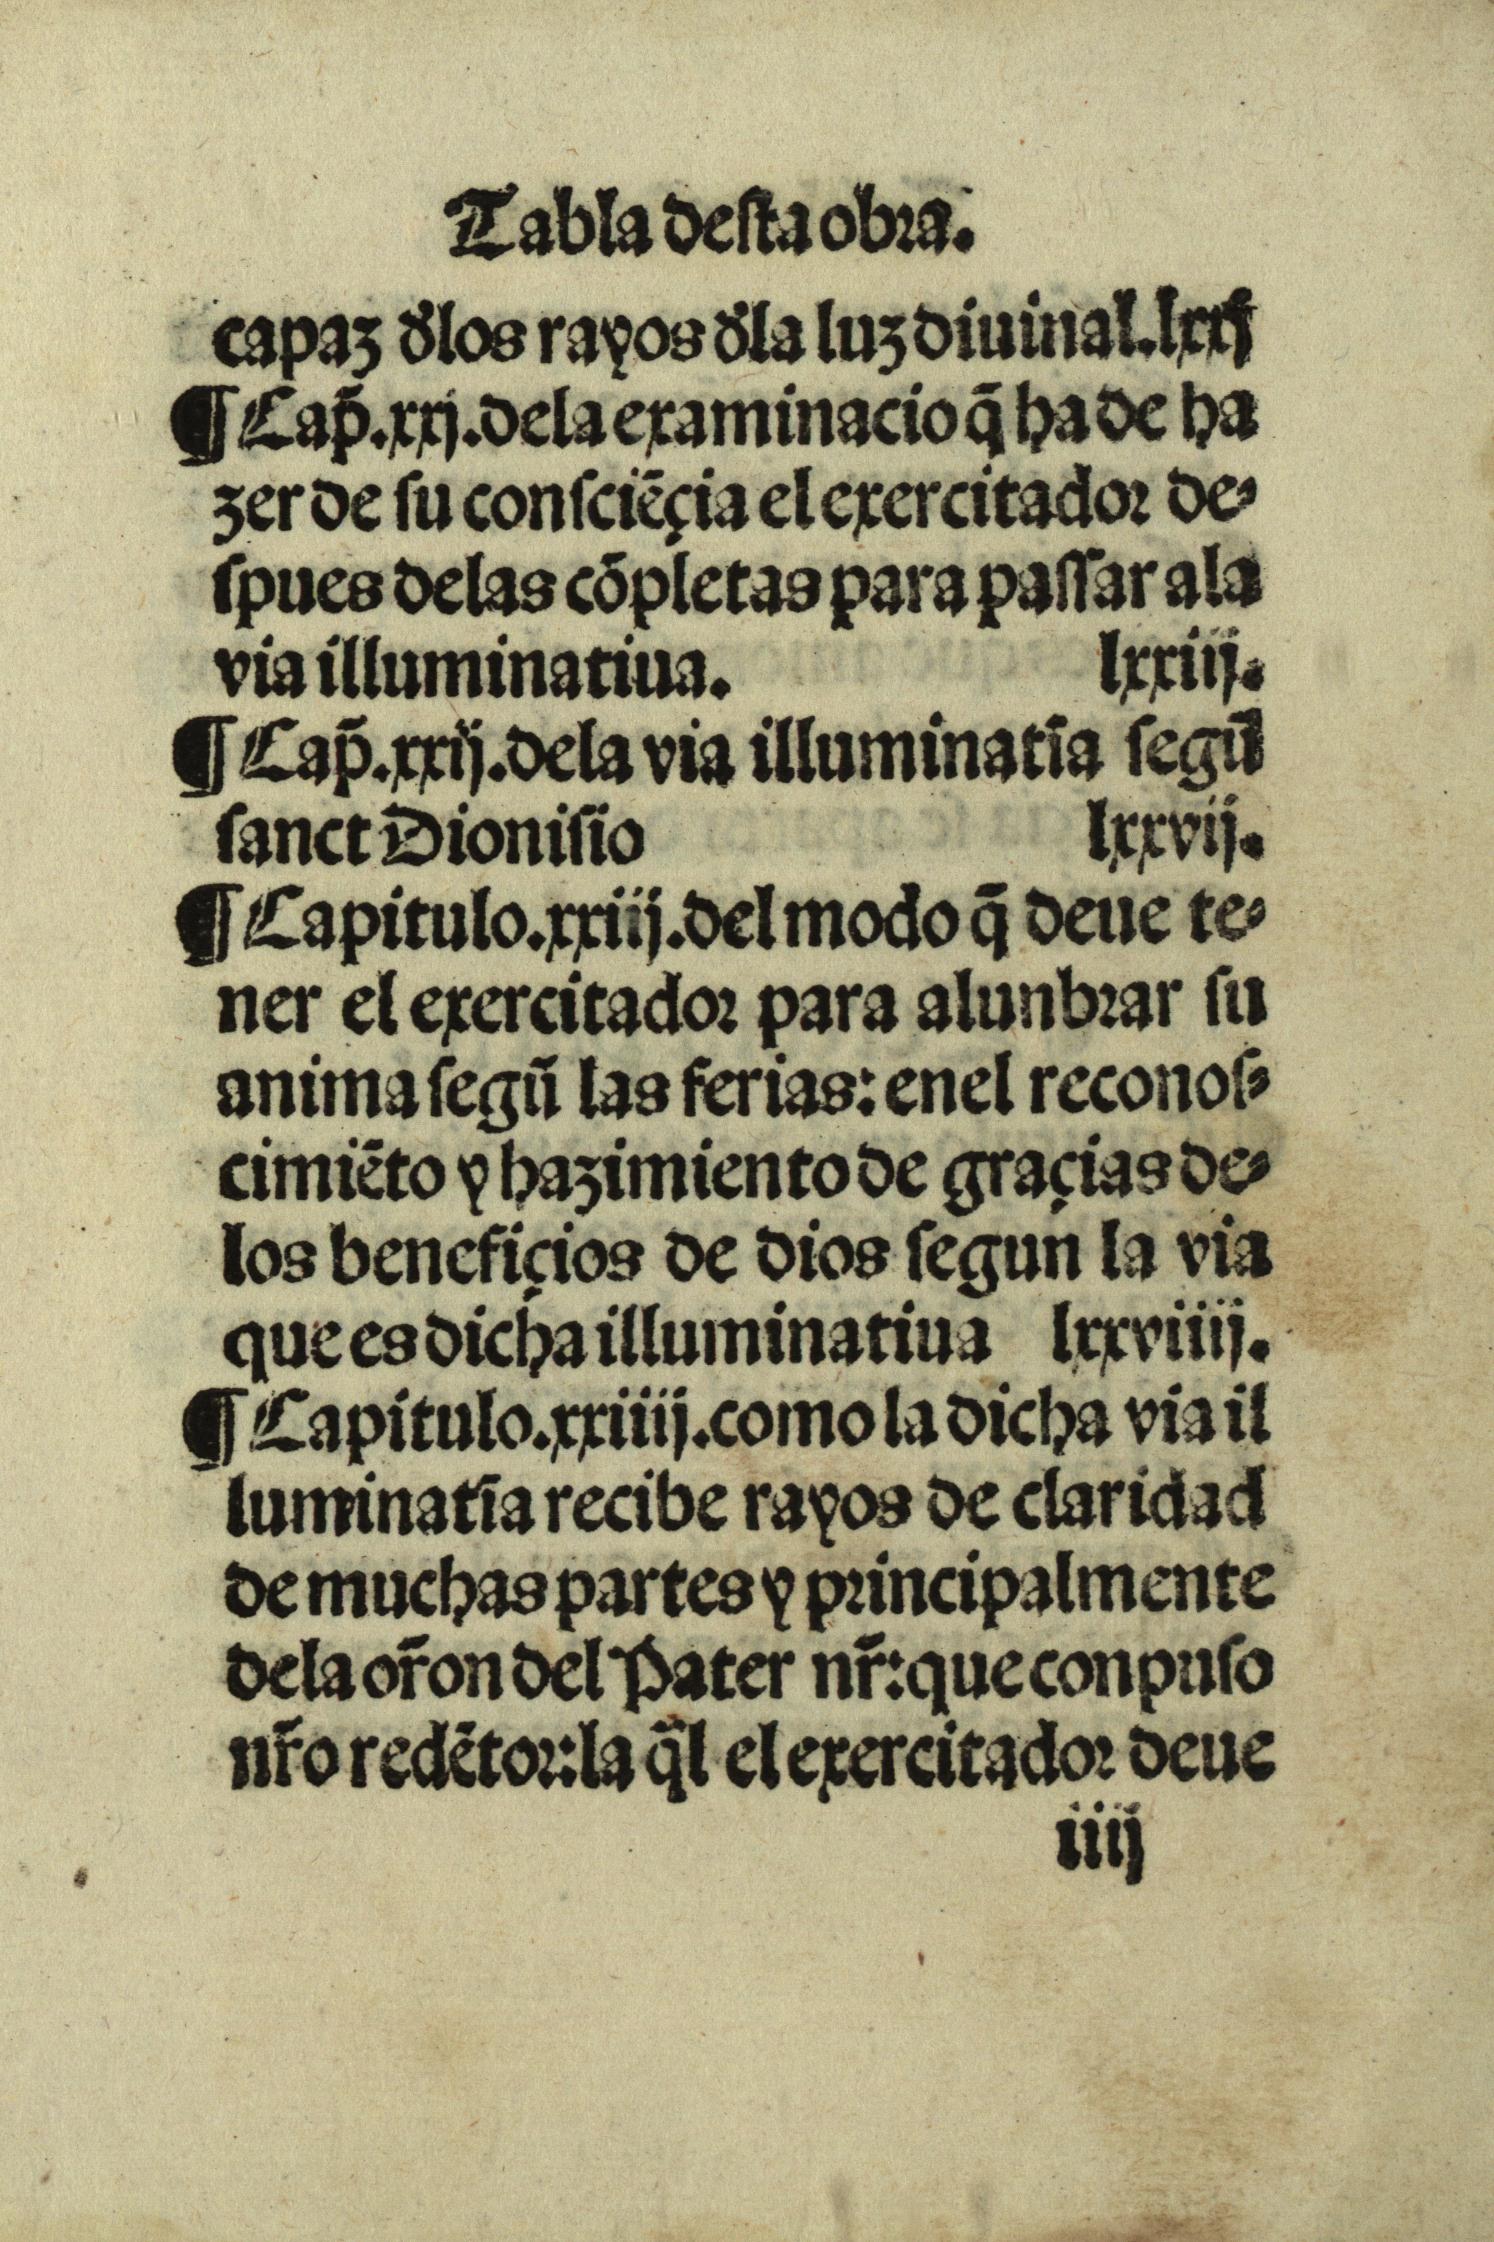 Tabla desta obra.
capaz d̃los rayos d̃la luz diuinal.lxxj
¶ Cap̃.xxj.dela examinacio q̃ ha de ha
zer de su consciẽçia el exercitador de-
spues delas cõpletas para passar ala
via illuminatiua. lxxiij.
¶ Cap̃.xxij.dela via illuminatĩa segũ
sanct Dionisio lxxvij.
¶ Capitulo.xxiij.del modo q̃ deue te-
ner el exercitador para alunbrar su
anima segũ las ferias: enel reconos-
cimiẽto y hazimiento de graçias de-
los benefiçios de dios segun la via
que es dicha illuminatiua lxxviiij.
¶ Capitulo.xxiiij.como la dicha via il
luminatĩa recibe rayos de claridad
de muchas partes y principalmente
dela or̃on del Pater nr̃: que conpuso
nr̃o redẽtor: la q̃l el exercitador deue
iiij